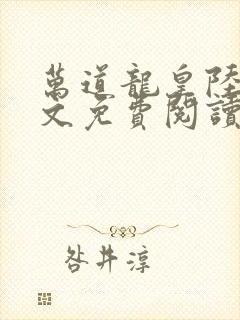 萬道龍皇陸
文免費閱讀
咎井淳